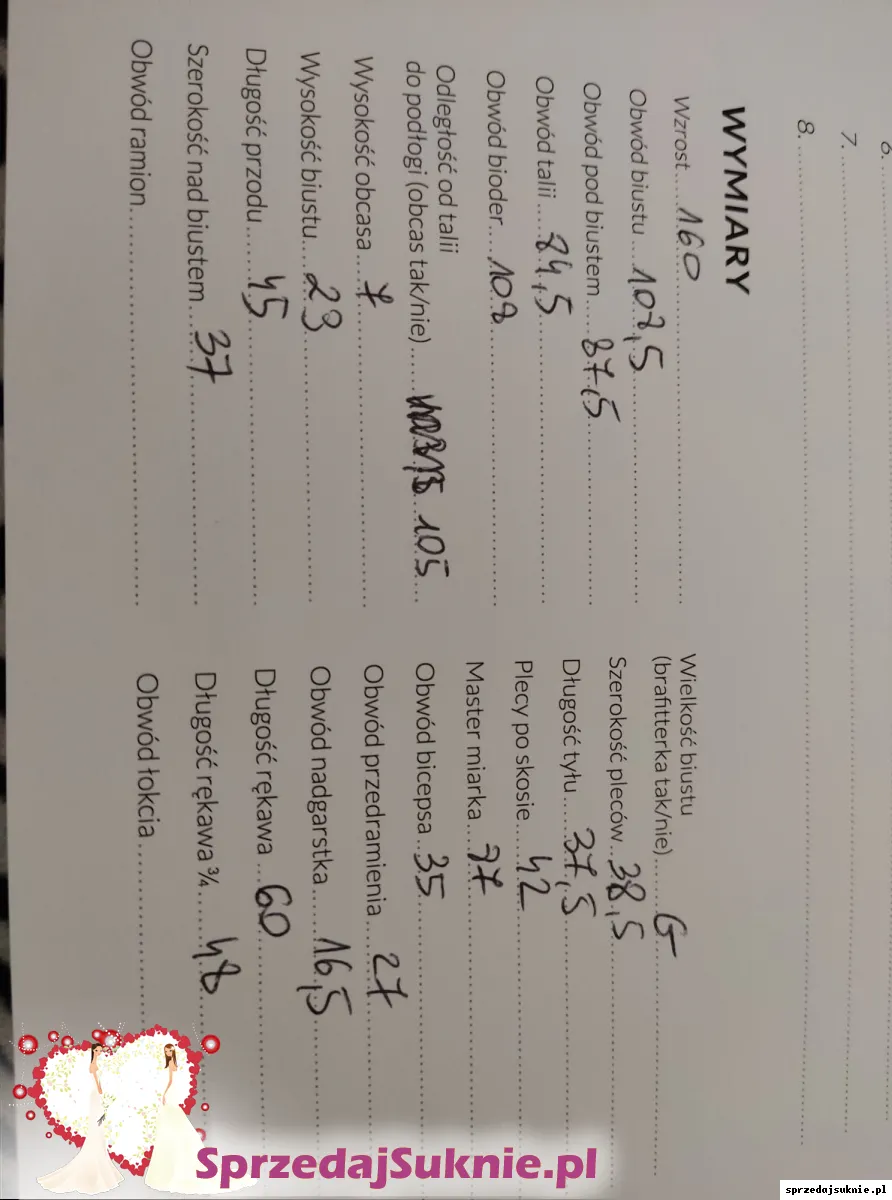 6.
7.
8.
WYMIARY
Wzrost 160
Obwód biustu 108,5
Obwód pod biustem 87,5
Obwód talii 84,5
Obwód bioder 108
Odległość od talii
do podłogi (obcas tak/nie) 105
Wysokość obcasa 7
Wysokość biustu 29
Długość przodu 45
Szerokość nad biustem 37
Obwód ramion
Wielkość biustu
(brafitterka tak/nie) G
Szerokość pleców 38,5
Długość tyłu 37,5
Plecy po skosie 42
Master miarka 77
Obwód bicepsa 35
Obwód przedramienia 27
Obwód nadgarstka 16,5
Długość rękawa 60
Długość rękawa ¾ 48
Obwód łokcia
SprzedajSuknie.pl
sprzedajsuknie.pl